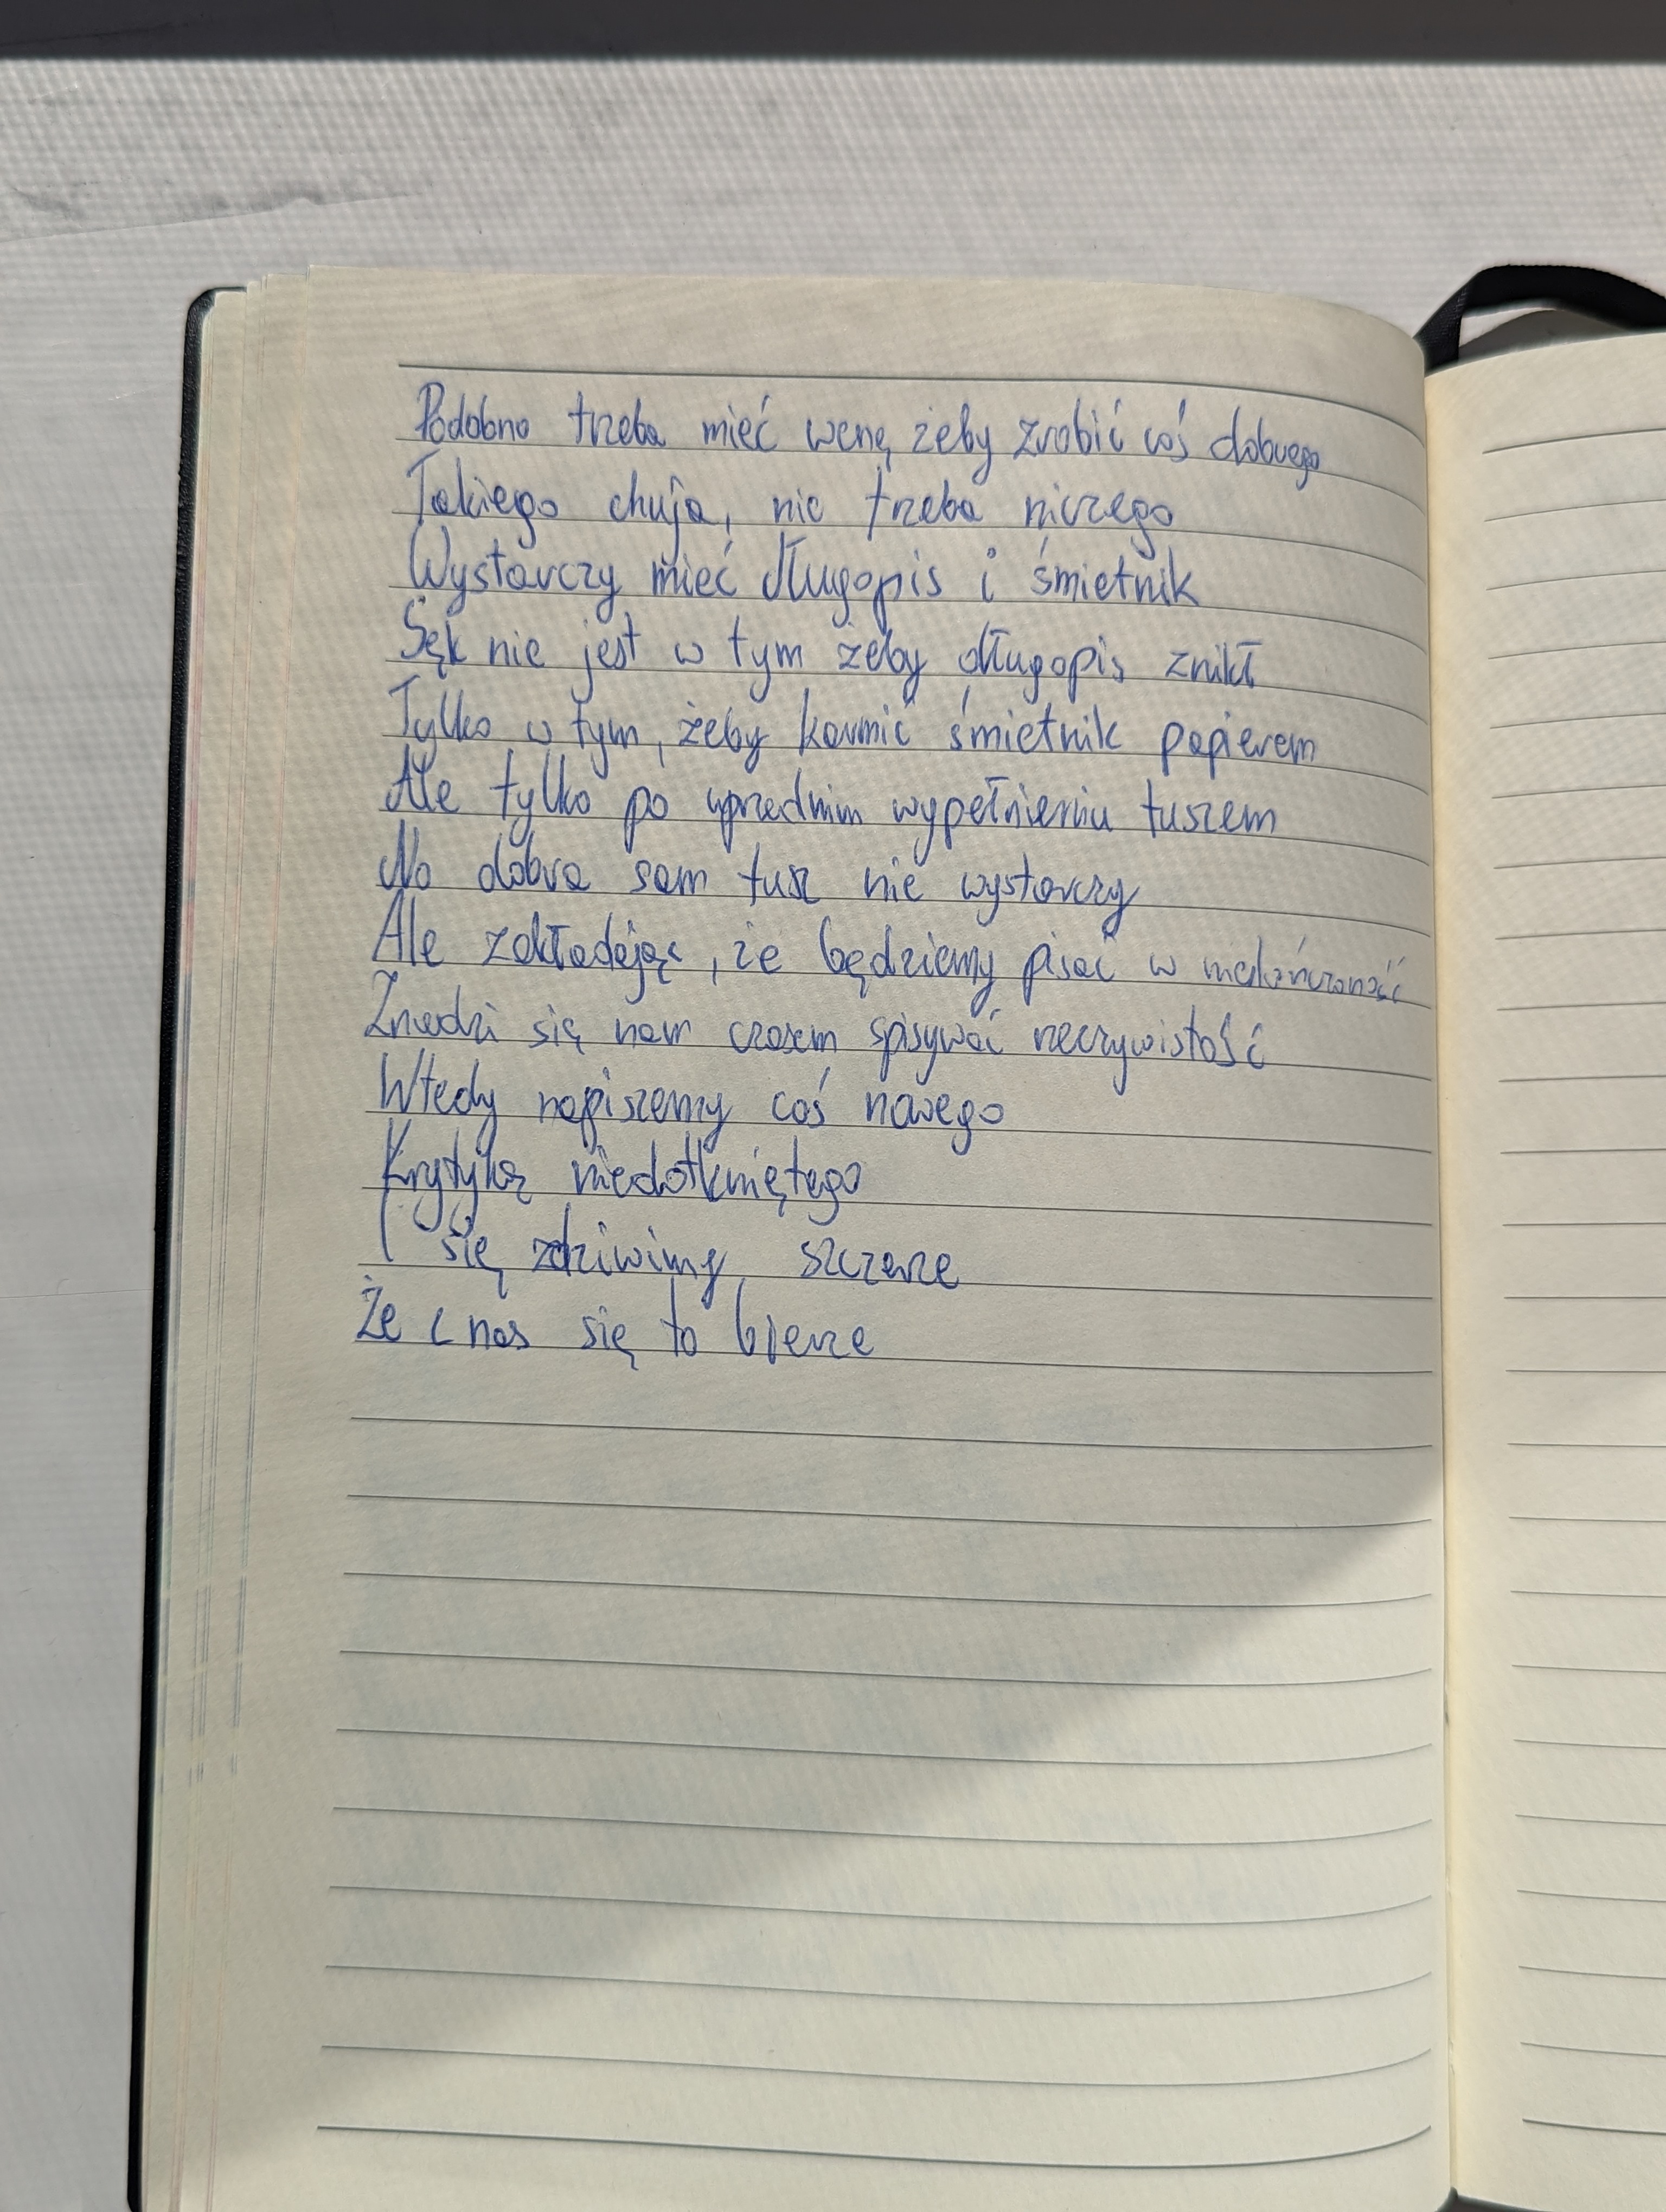 Podobno trzeba mieć wenę żeby zrobić coś dobrego
Takiego chuja, nie trzeba niczego
Wystarczy mieć długopis i śmietnik
Sęk nie jest w tym żeby długopis znikł
Tylko w tym, żeby karmić śmietnik papierem
Ale tylko po uprzednim wypełnieniu tuszem
No dobra sam tusz nie wystarczy
Ale zakładając, że będziemy pisać w nieskończoność
Znudzi się nam czasem spisywać rzeczywistość
Wtedy napiszemy coś nowego
Krytyką niedotkniętego
I się zdziwimy szczerze
Że z nas się to bierze